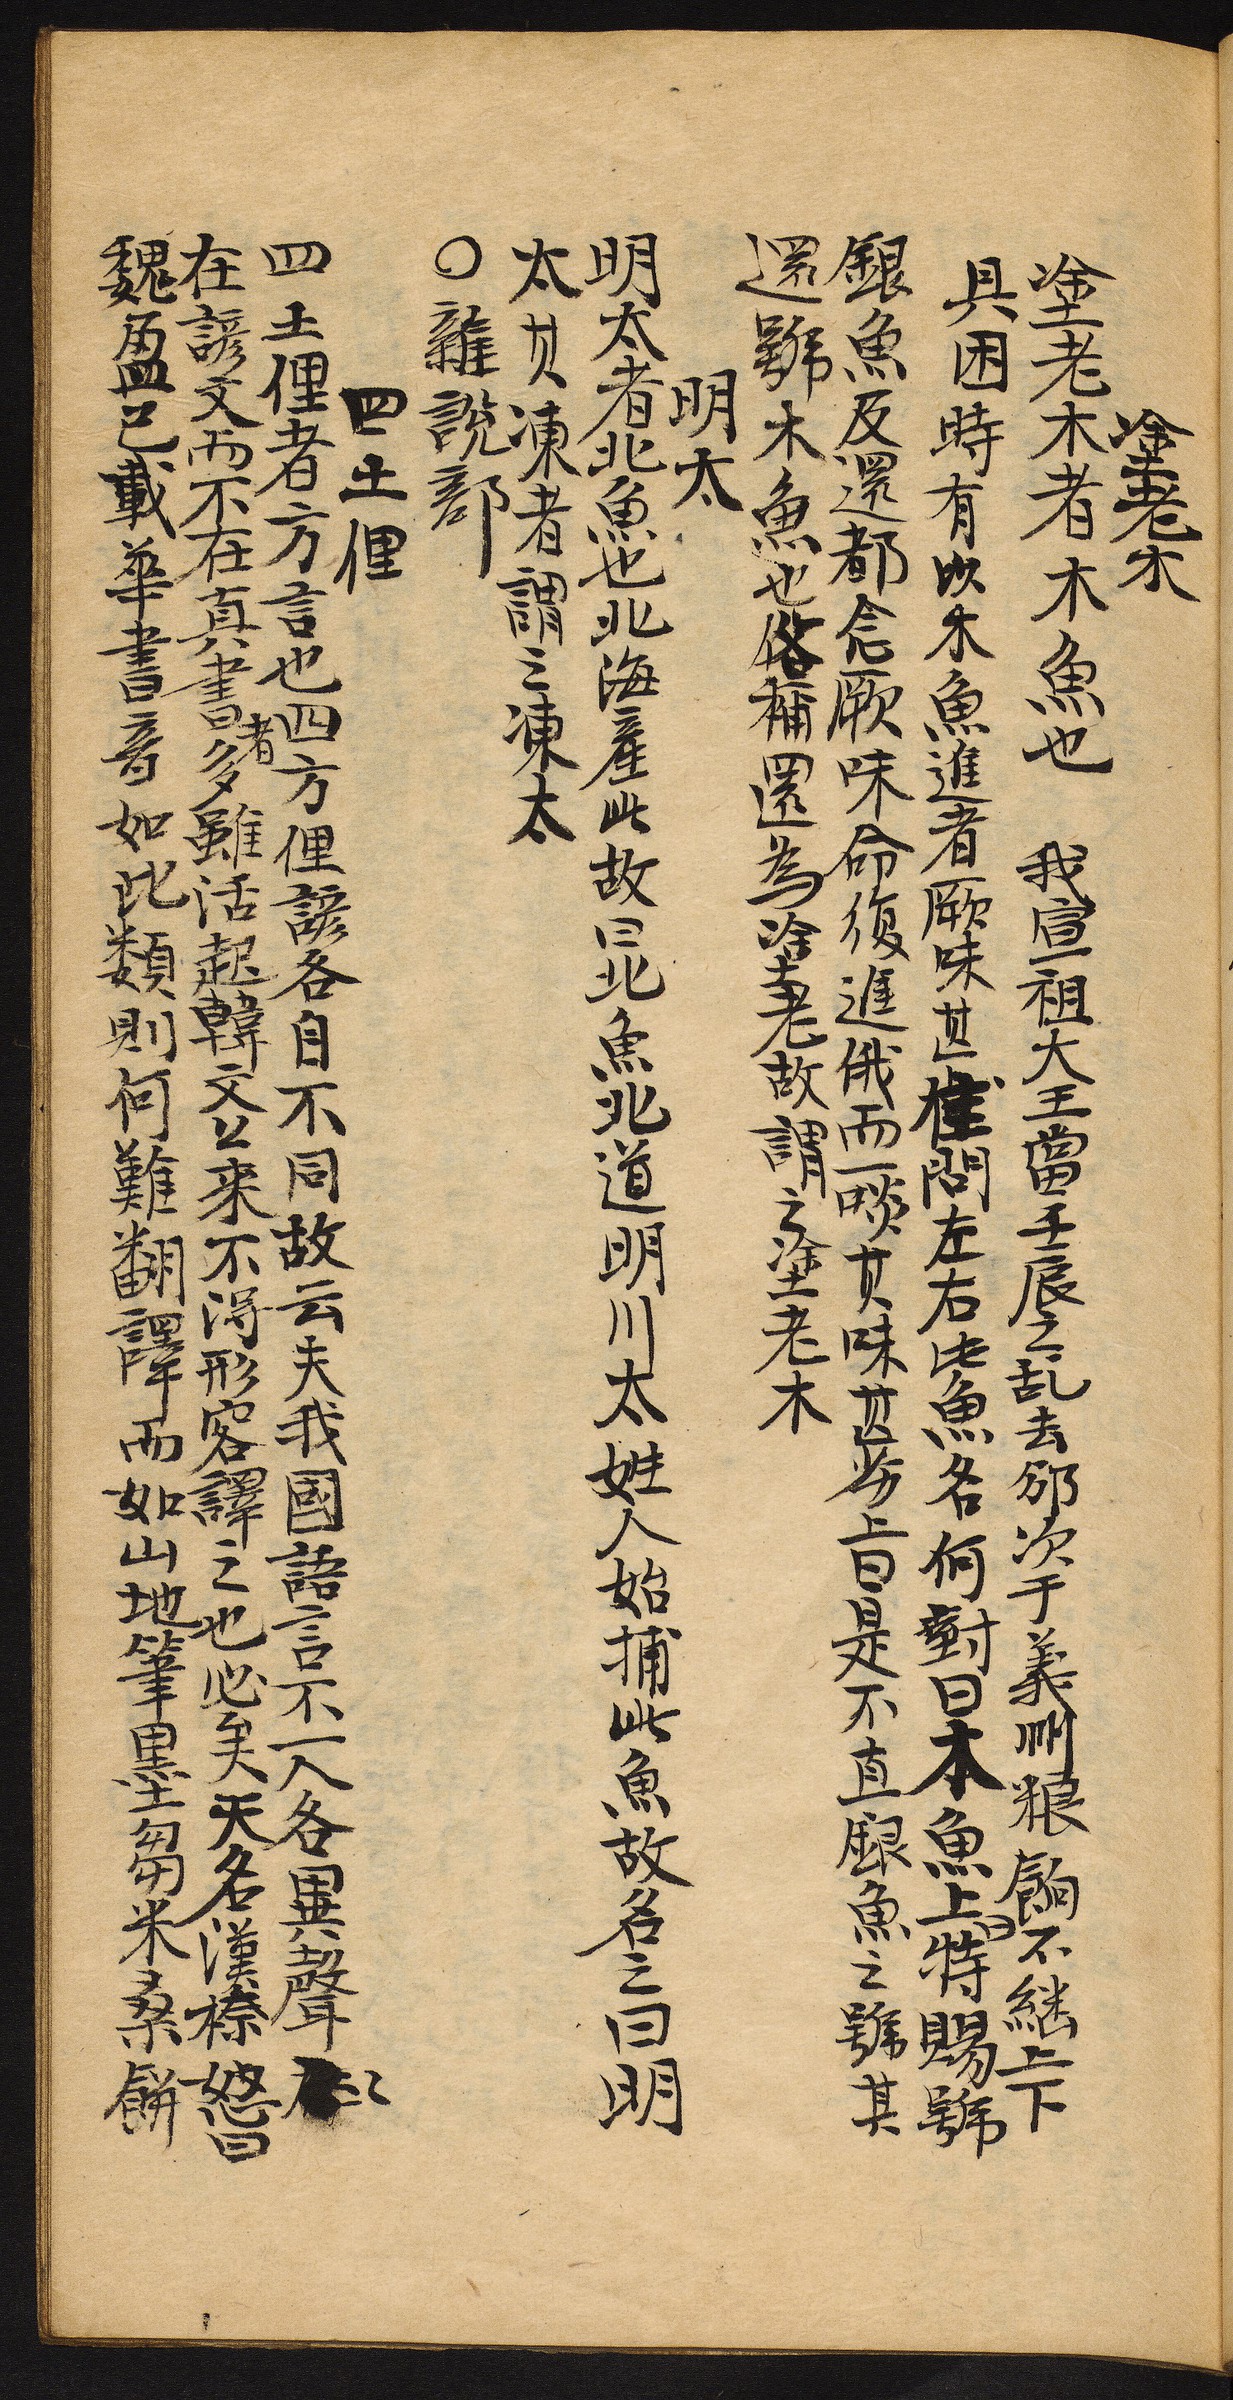 塗老木
塗老木者木魚也 我宣祖大王當壬辰之乱去邠次于義州粮餉不継上下
具困時有以木魚進者厥味甚佳問左右此魚名何對曰木魚上曰特賜號
銀魚及還都念厥味命復進俄而啖其味甚劣上曰是不直銀魚之號其
還號木魚也俗補還為塗老故謂之塗老木
明太
明太者北魚也北海産此故曰北魚北道明川太姓人始捕此魚故名之曰明
太其凍者謂之凍太
○雜說部
四土俚
四土俚者方言也四方俚諺各自不同故云夫我國語言不一人各異聲
在諺文而不在真書者多雖活起韓文公来不得形容譯之也必矣天名漢榛怒曰
魏盈已載華書音如此類則何難翻譯而如山地筆墨芻米桑餅